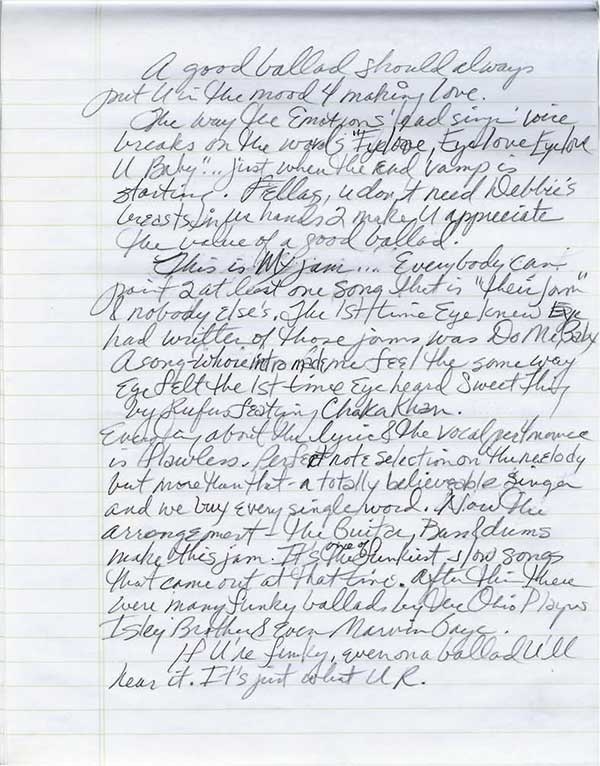 A good ballad should always
put U in the mood 4 making love.
The way the Emotions' lead singin' voice
breaks on the words "Eye love, Eye love Eye love
U Baby"... just when the end vamp is
starting. Fellas, u don't need Debbie's
breasts in ur hands 2 make U appreciate
the value of a good ballad.
This is MY jam... Everybody can
point 2 at least one song that is "their jam"
& nobody else's. The 1st time Eye knew Eye
had written 1 of those jams was Do Me, Baby
A song whose intro made me feel the same way
Eye felt the 1st time Eye heard Sweet Thing
by Rufus featuring Chaka Khan.
Everything about the lyric & the vocal performance
is flawless. Perfect note selection on the melody
but more than that - a totally believeable singer
and we buy every single word. Now the
arrangement - the Guitar, Bass & drums
make this jam. It's one of the funkiest slow songs
that came out at that time. After this there
were many funky ballads by the Ohio Players
Isley Brothers & Even Marvin Gaye.
If U're funky, even on a ballad U'll
hear it. It's just what U R.